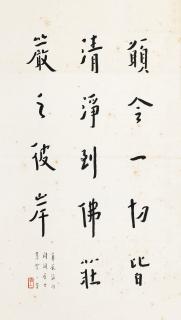 願令一切皆
清淨到佛莊
嚴之彼岸